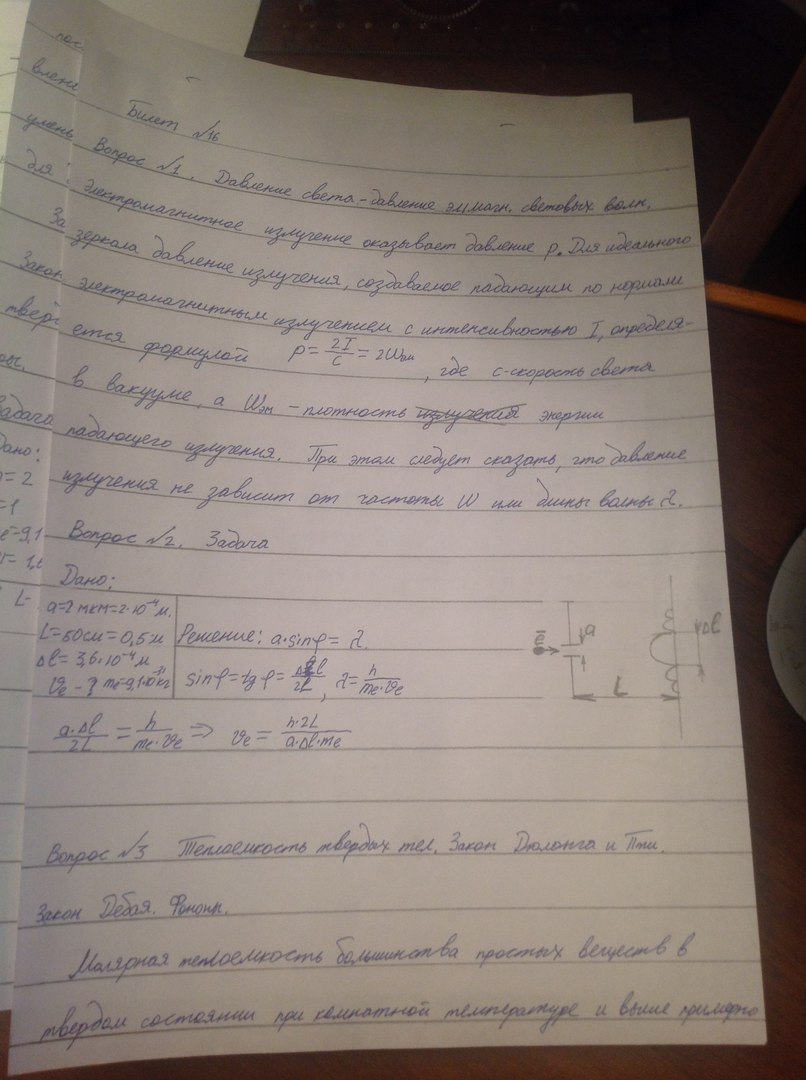 Билет №16
Вопрос №1. Давление света - давление эл.магн. световых волн.
электромагнитное излучение оказывает давление p. Для идеального
зеркала давление излучения, создаваемое падающим по нормали
электромагнитным излучением с интенсивностью I, определя-
ется формулой p = 2I/c = 2Wэм, где c-скорость света
в вакууме, а Wэм - плотность излучения энергии
падающего излучения. При этом следует сказать, что давление
излучения не зависит от частоты W или длины волны λ.
Вопрос №2. Задача
Дано:
a=2 мкм=2·10⁻⁴ м.
L=50см=0,5 м
Δl=3,6·10⁻⁴ м
Ve - ? me=9,1·10⁻³¹кг
Решение: a·sinφ = λ
sinφ=tgφ = Δl/2L, λ = h/me·Ve
a·Δl/2L = h/me·Ve => Ve = h·2L/a·Δl·me
ē
a
L
Δl
Вопрос №3 Теплоемкость твердых тел. Закон Дюлонга и Пти.
Закон Дебая. Фононы.
Молярная теплоемкость большинства простых веществ в
твердом состоянии при комнатной температуре и выше примерно
пос
влени
умень
для
За
Закон
твёр
Задача
Дано:
= 2
=1
e=9,1
= 1,6
L-